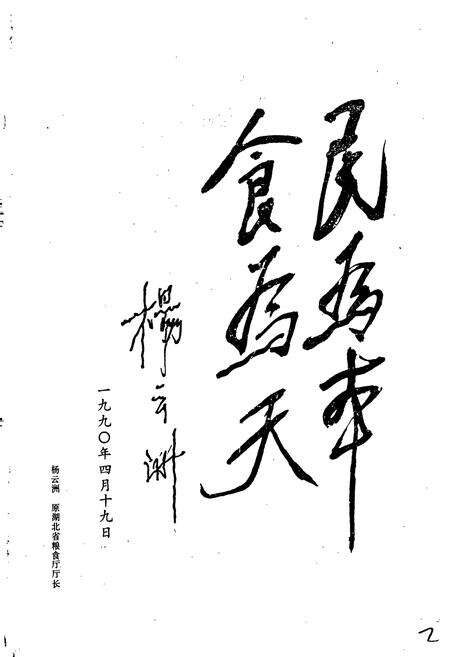 民为本
食为天
杨云洲
一九九〇年四月十九日
杨云洲 原湖北省粮食厅厅长
2